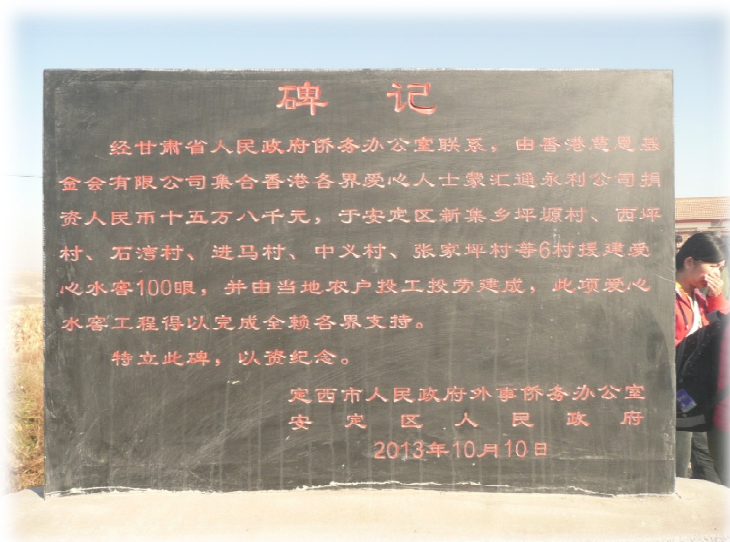 碑记
经甘肃省人民政府侨务办公室联系，由香港黄恩县
金会有限公司集合香港各界爱心人士蒙汇通永利公司捐
资人民币十五万八千元，于安定区新集乡坪塬村、西坪
村、石湾村、进马村、中义村、张家坪村等6村援建爱
心水窖100眼，并由当地农户投工投劳建成，此项爱心
水窖工程得以完成全赖各界支持。
特立此碑，以资纪念。
定西市人民政府外事侨务办公室
安定区人民政府
2013年10月10日